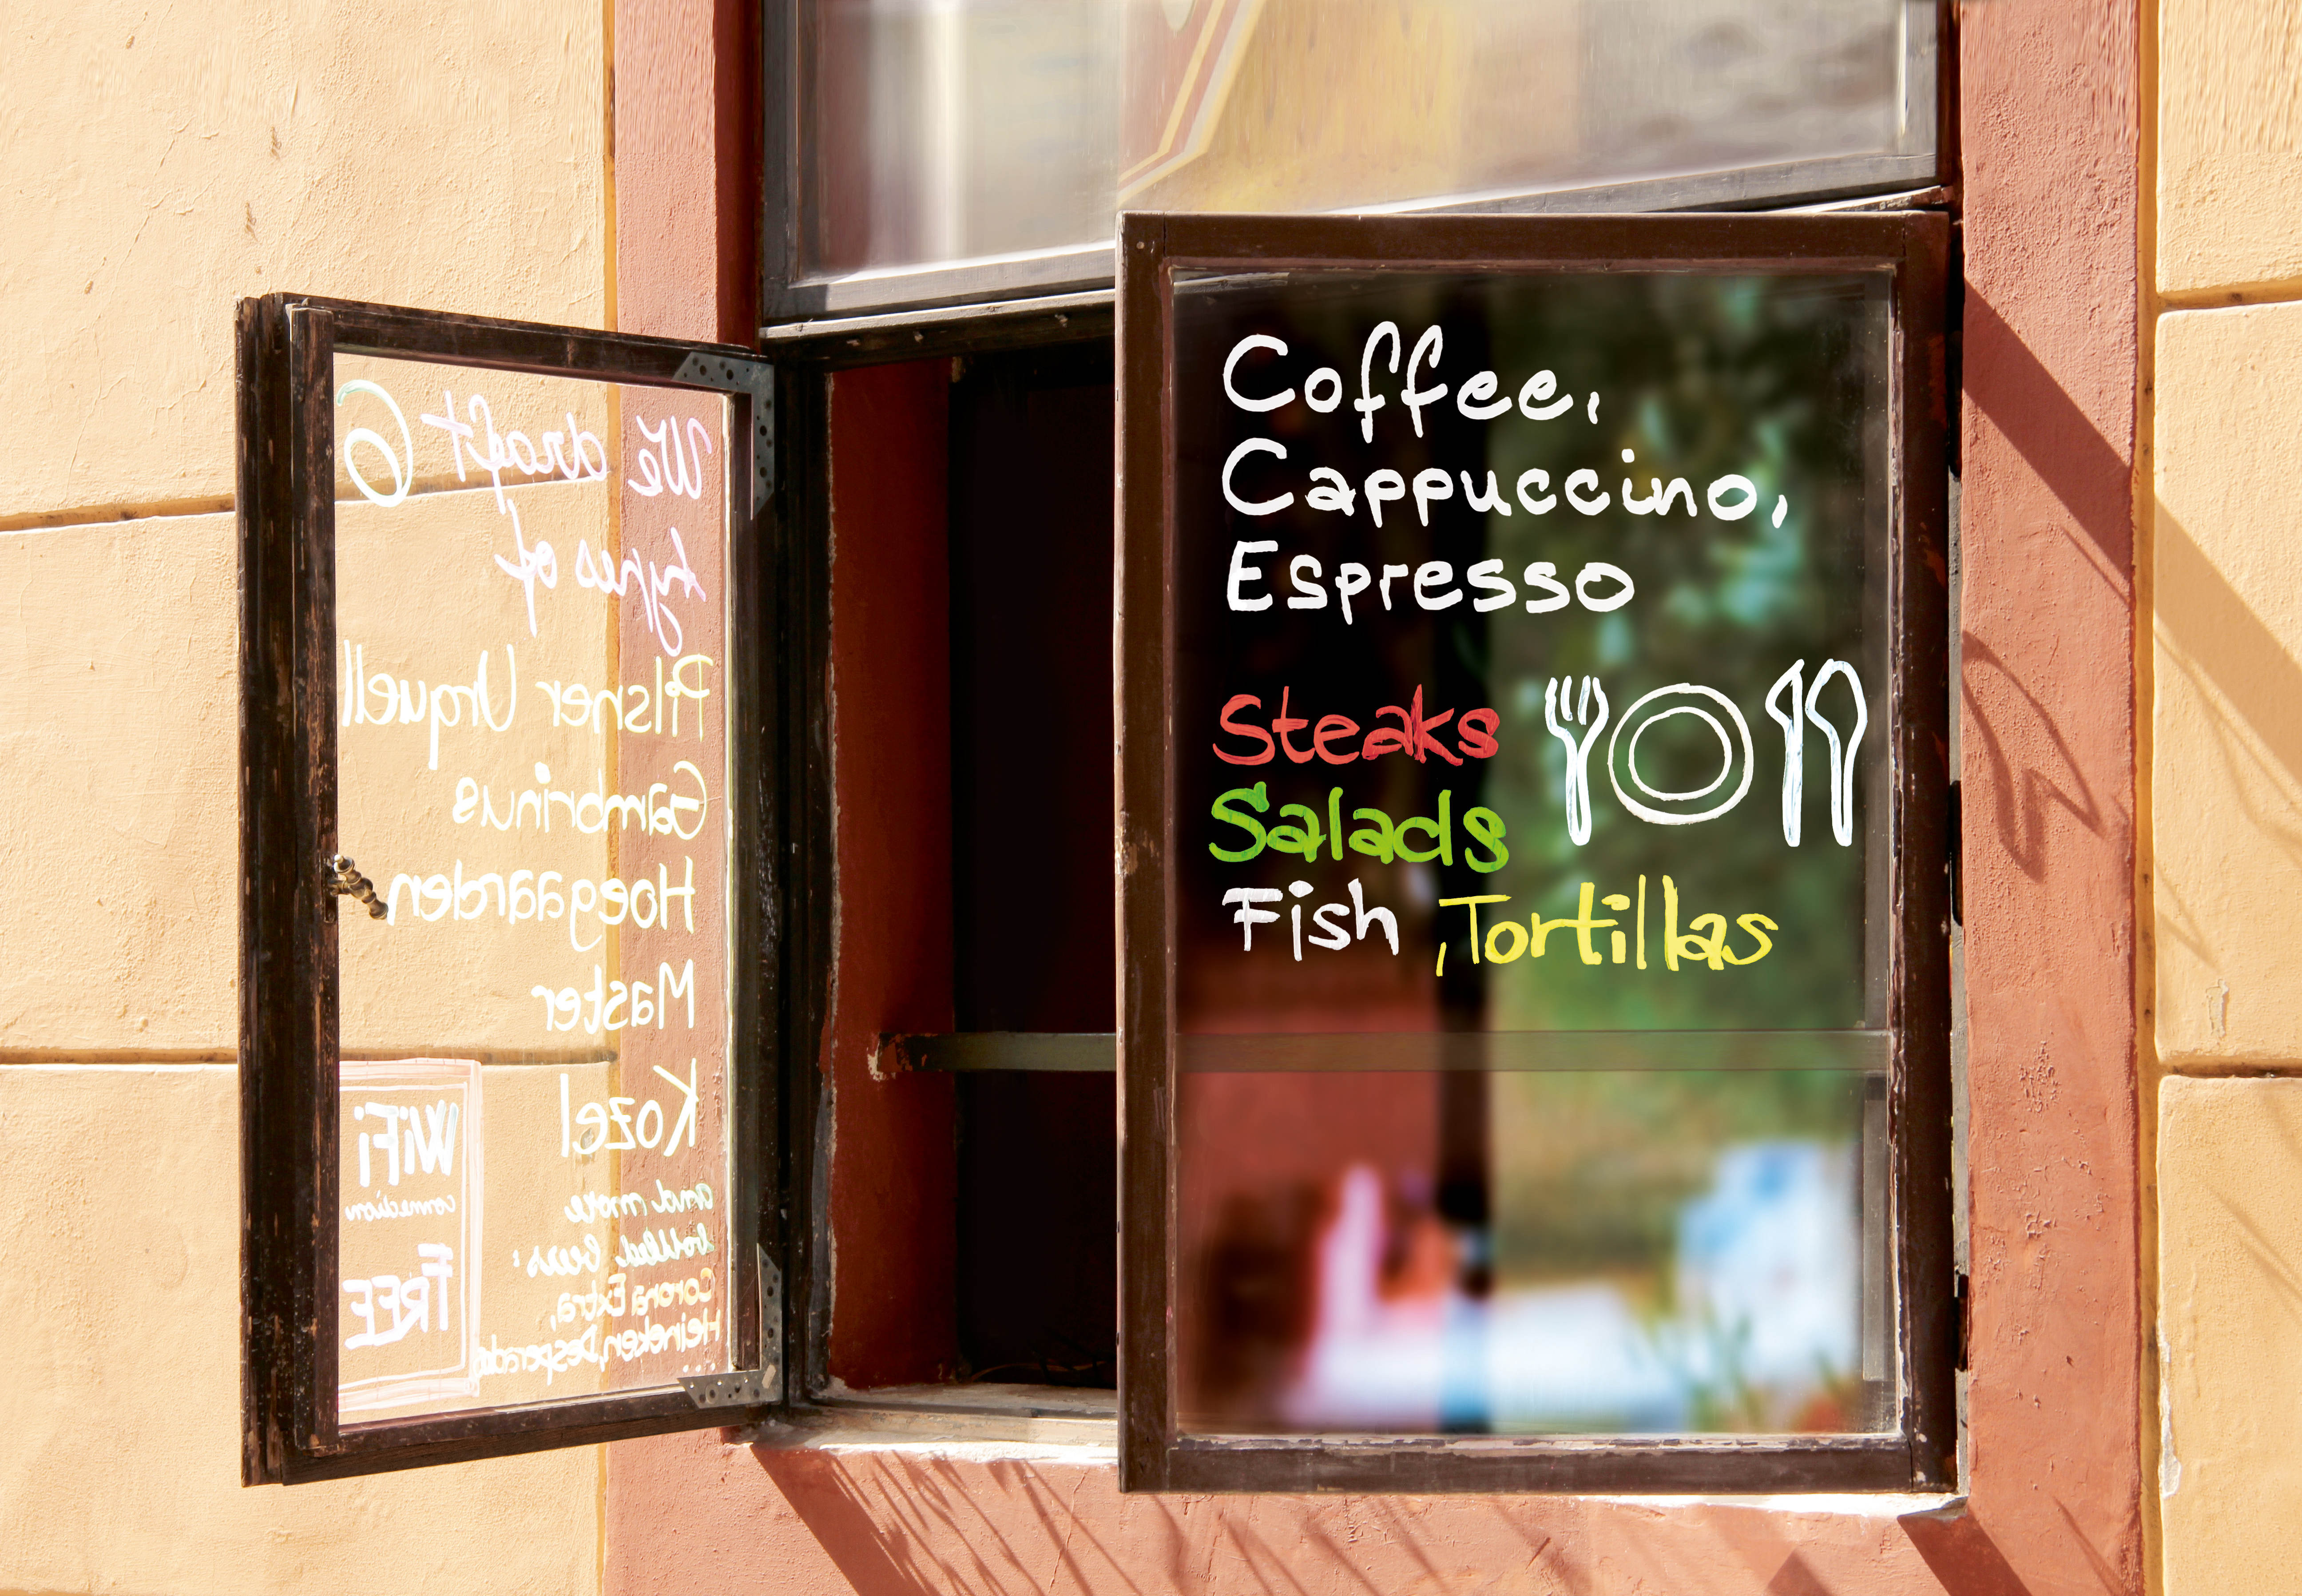 We draft 6
types of
Pilsner Urquell
Gambrinus
Hoegaarden
Master
Kozel
and more
bottled beers:
Corona Extra,
Heineken, Desperados
...
WiFi
connection
FREE
Coffee,
Cappuccino,
Espresso
Steaks
Salads
Fish ,Tortillas